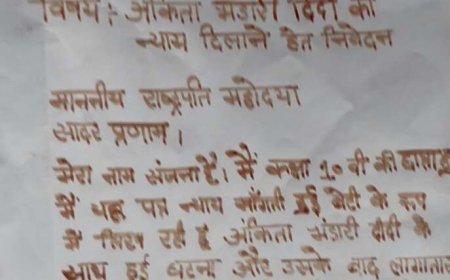 विषय :- अंकिता भंडारी दिदी को
न्याय दिलाने हेतु निवेदन
माननीय राष्ट्रपति महोदया
सादर प्रणाम ।
मेरा नाम संजना है। मैं कक्षा 10 वी की छात्रा हूं
मैं यह पत्र न्याय माँगती हुई बेटी के रूप
में लिख रही हूं अंकिता भंडारी दीदी के
साथ हुई घटना और उसके बाद लगातार